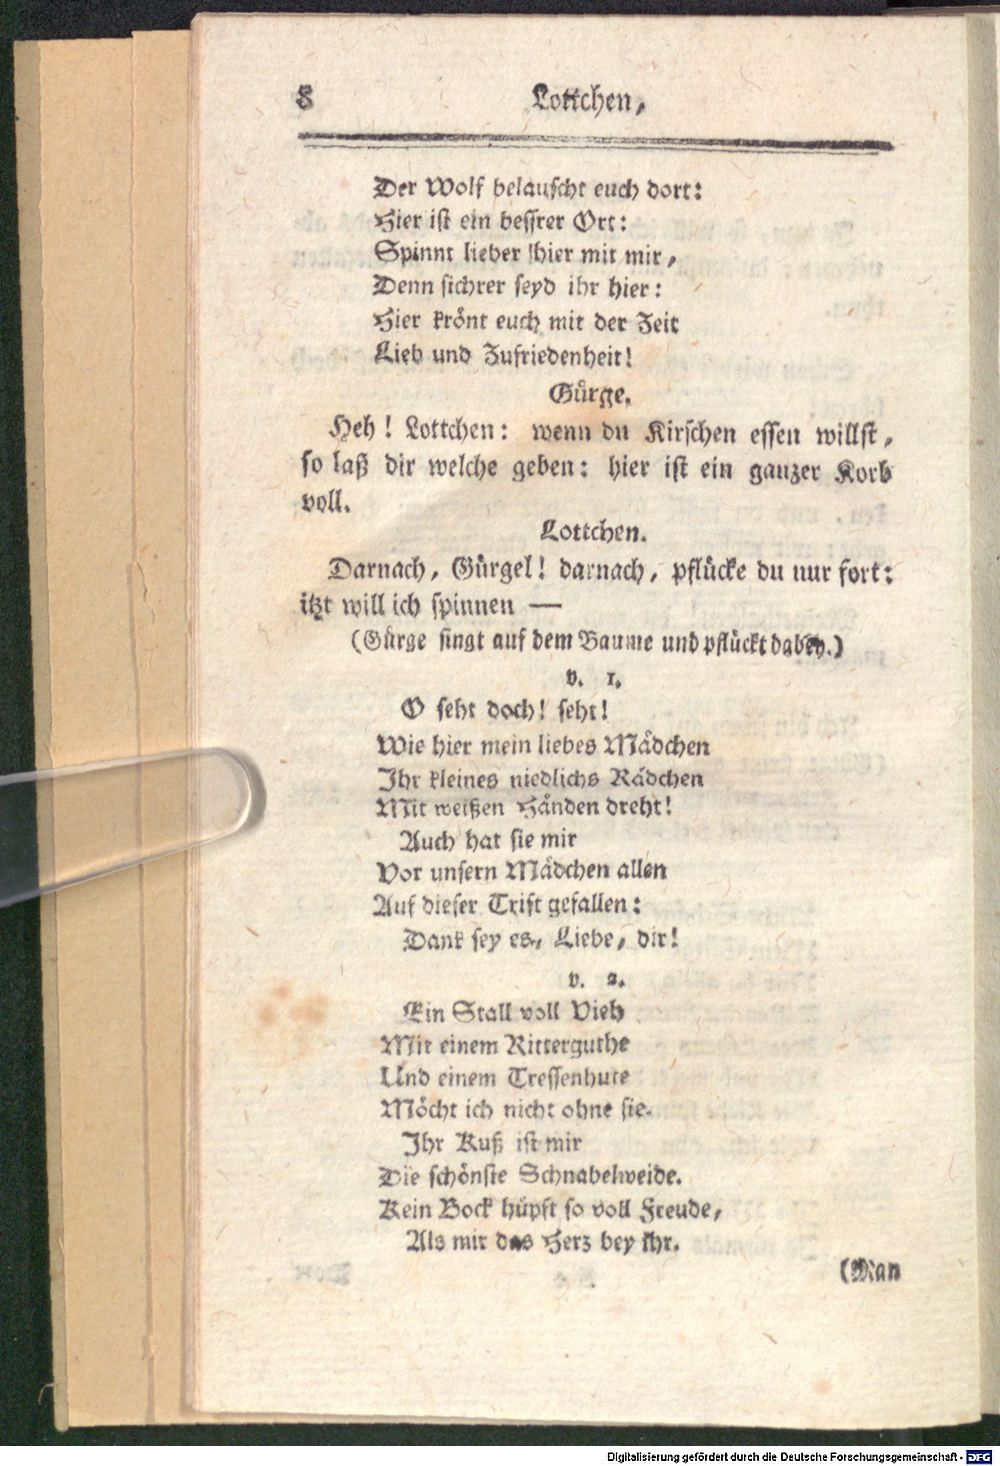 8 Lottchen,
Der Wolf belauscht euch dort:
Hier ist ein bessrer Ort:
Spinnt lieber hier mit mir,
Denn sichrer seyd ihr hier:
Hier krönt euch mit der Zeit
Lieb und Zufriedenheit!
Gürge.
Heh! Lottchen: wenn du Kirschen essen willst,
so laß dir welche geben: hier ist ein ganzer Korb
voll.
Lottchen.
Darnach, Gürgel! darnach, pflücke du nur fort:
itzt will ich spinnen —
(Gürge singt auf dem Baume und pflückt dabey.)
v. 1.
O seht doch! seht!
Wie hier mein liebes Mädchen
Ihr kleines niedlichs Rädchen
Mit weißen Händen dreht!
Auch hat sie mir
Vor unsern Mädchen allen
Auf dieser Trist gefallen:
Dank sey es, Liebe, dir!
v. 2.
Ein Stall voll Vieh
Mit einem Ritterguthe
Und einem Tressenhute
Möcht ich nicht ohne sie.
Ihr Kuß ist mir
Die schönste Schnabelweide.
Kein Bock hüpft so voll Freude,
Als mir das Herz bey ihr.
(Man
Digitalisierung gefördert durch die Deutsche Forschungsgemeinschaft - DFG